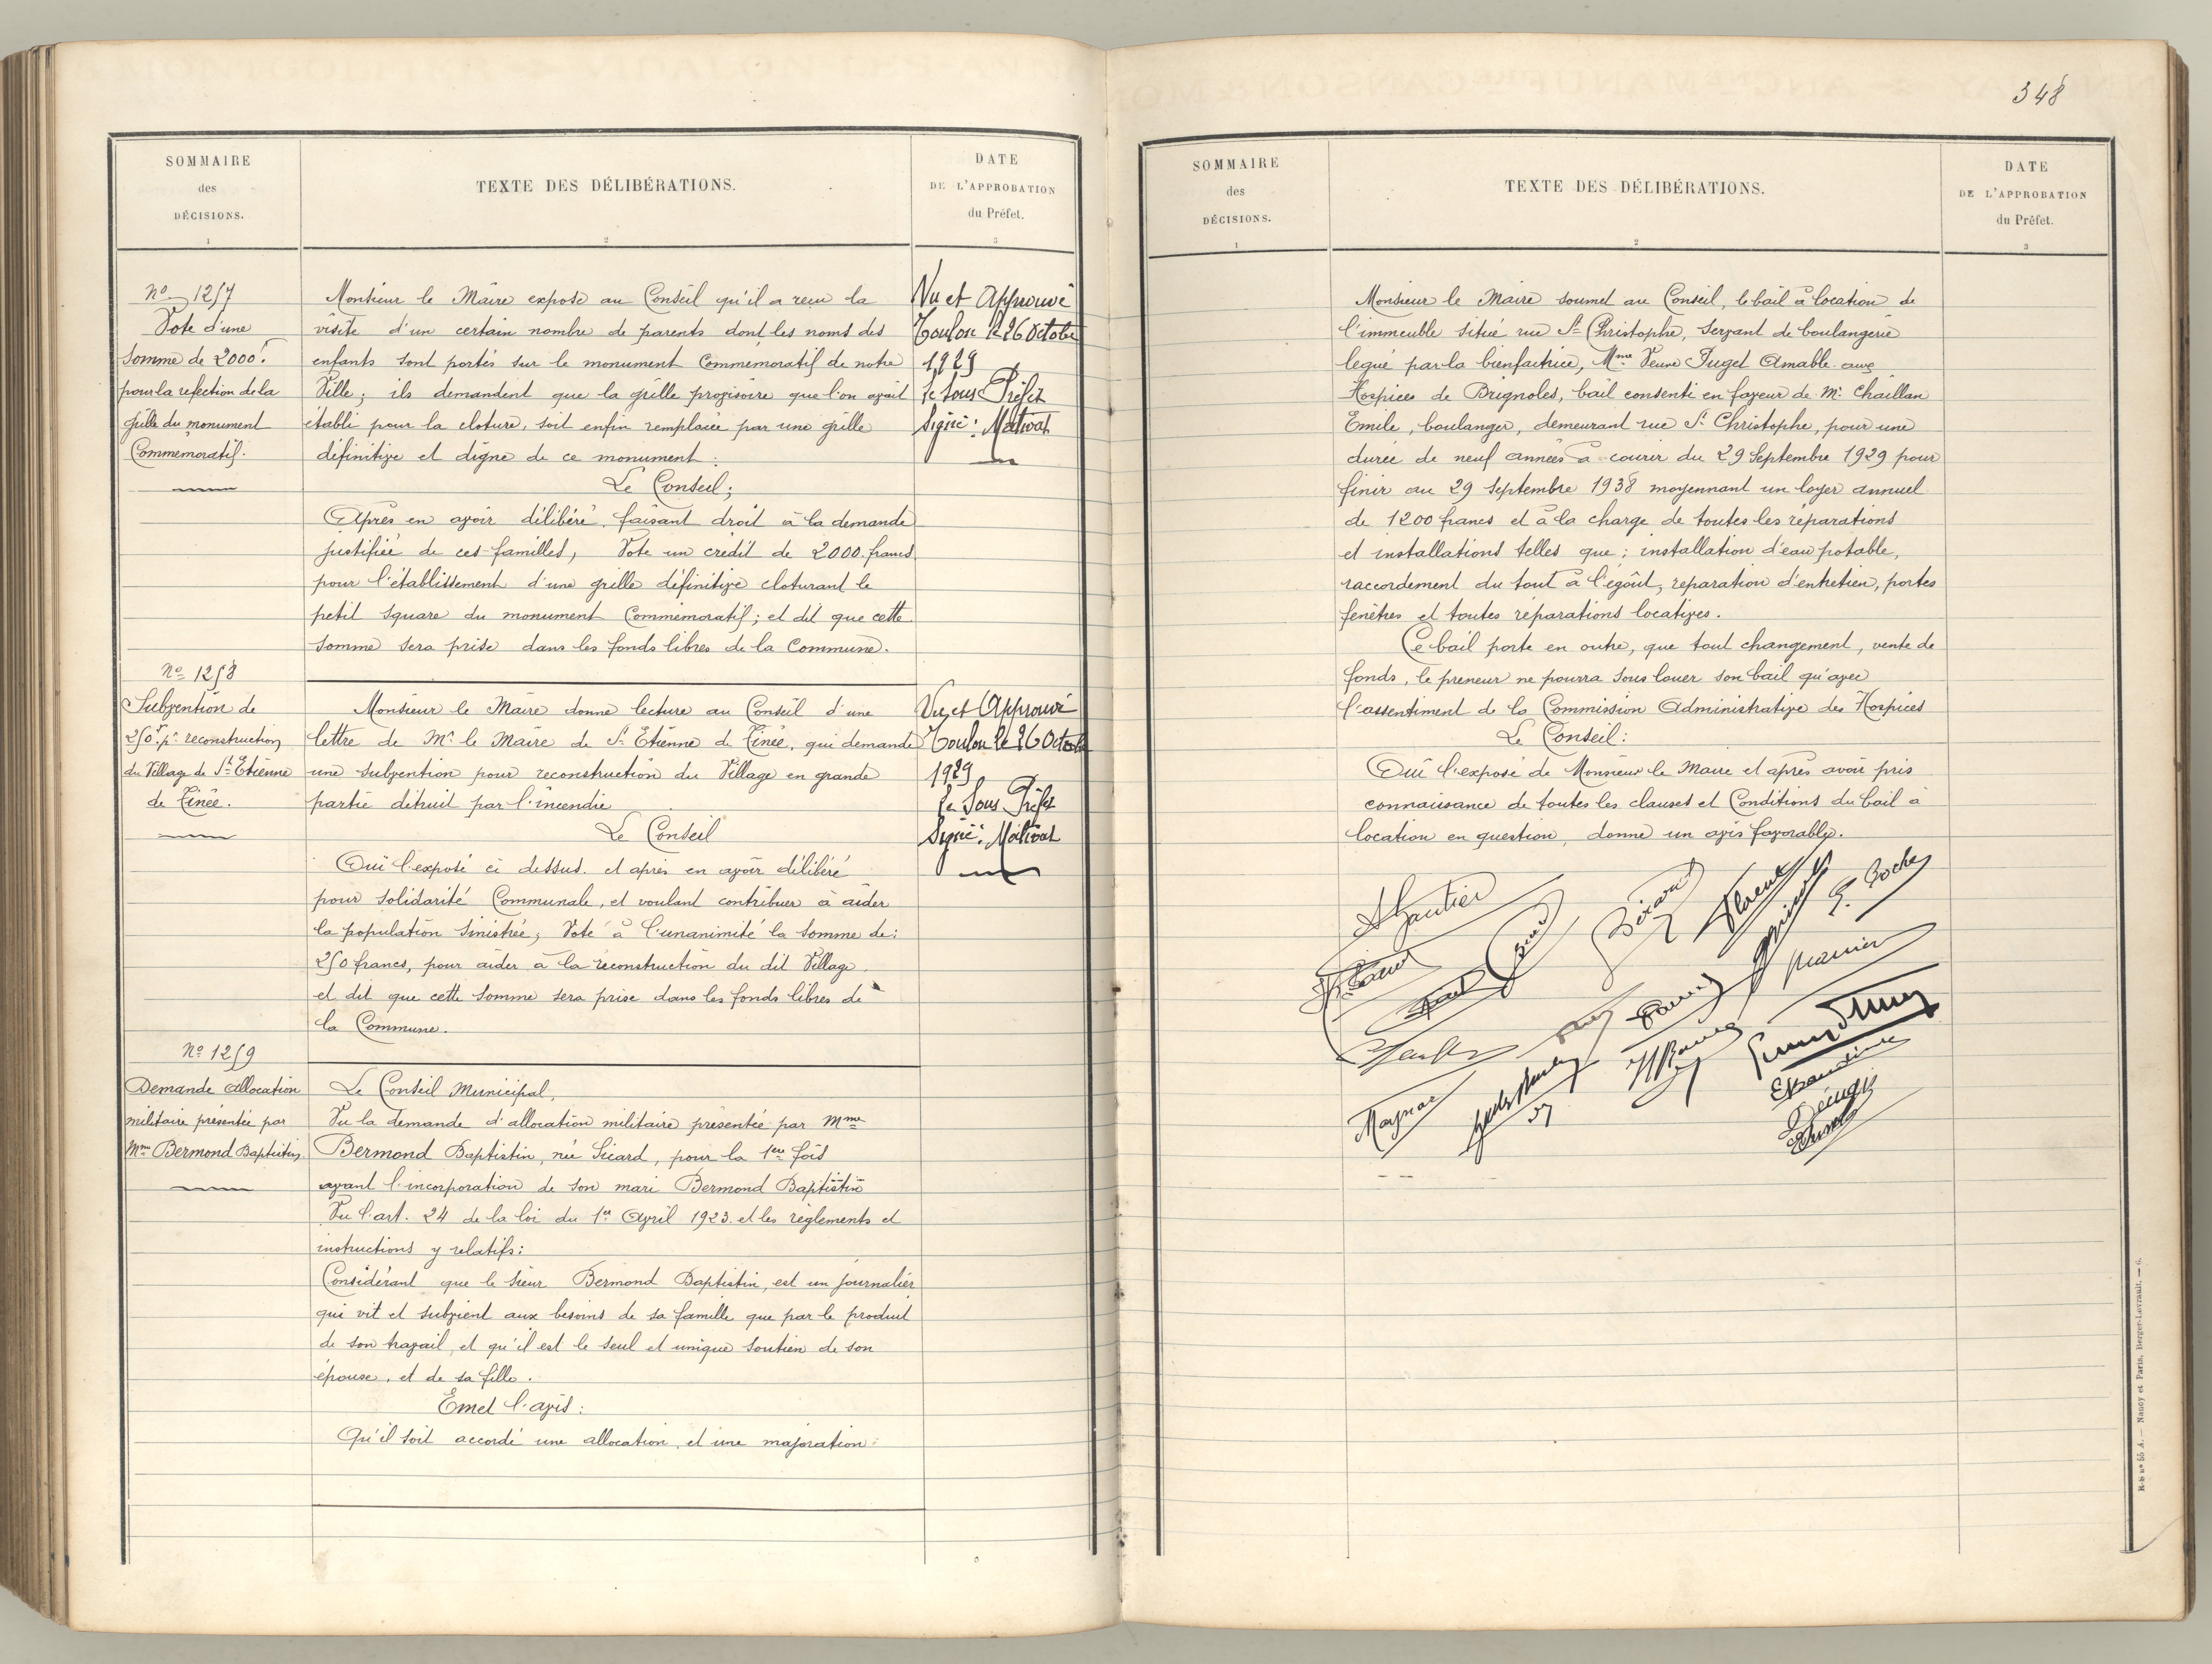 348
SOMMAIRE
des
DÉCISIONS.
1
TEXTE DES DÉLIBÉRATIONS.
2
DATE
DE L'APPROBATION
du Préfet.
3
No 1257
Vote d'une
somme de 2000f
pour la refection de la
grille du monument
Commemoratif.
Monsieur le Maire expose au Conseil qu'il a reçu la
visite d'un certain nombre de parents dont les noms des
enfants sont portés sur le monument Commemoratif de notre
Ville; ils demandent que la grille provisoire que l'on avait
établi pour la cloture, soit enfin remplacée par une grille
définitive et digne de ce monument:
Le Conseil;
Après en avoir délibéré, faisant droit à la demande
justifiée de ces familles, Vote un crédit de 2000 francs
pour l'établissement d'une grille définitive cloturant le
petit square du monument Commémoratif; et dit que cette
somme sera prise dans les fonds libres de la Commune.
Vu et Approuvé
Toulon le 26 Octobre
1929
Le Sous Préfet
Signé: Mativat
No 1258
Subvention de
250f pr reconstruction
du Village de St Etienne
de Tinée.
Monsieur le Maire donne lecture au Conseil d'une
lettre de Mr le Maire de St Etienne de Tinée, qui demande
une subvention pour reconstruction du Village en grande
partie détruit par l'incendie
Le Conseil
Ouï l'exposé ci dessus. et après en avoir délibéré
pour solidarité Communale, et voulant contribuer à aider
la population sinistrée; Vote à l'unanimité la somme de:
250 francs, pour aider à la reconstruction du dit Village
et dit que cette somme sera prise dans les fonds libres de
la Commune.
Vu et Approuvé
Toulon le 26 Octobre
1929
Le Sous Préfet
Signé: Mativat
No 1259
Demande allocation
militaire présentée par
Mme Bermond Baptistin
Le Conseil Municipal,
Vu la demande d'allocation militaire présentée par Mme
Bermond Baptistin, née Sicard, pour la 1ere fois
avant l'incorporation de son mari Bermond Baptistin
Vu l'art. 24 de la loi du 1er Avril 1923. et les règlements et
instructions y relatifs:
Considérant que le sieur Bermond Baptistin, est un journalier
qui vit et subvient aux besoins de sa famille que par le produit
de son travail, et qu'il est le seul et unique soutien de son
épouse, et de sa fille.
Emet l'avis:
Qu'il soit accordé une allocation, et une majoration
SOMMAIRE
des
DÉCISIONS.
1
TEXTE DES DÉLIBÉRATIONS.
2
DATE
DE L'APPROBATION
du Préfet.
3
Monsieur le Maire soumet au Conseil, le bail à location de
l'immeuble situé rue St Christophe, servant de boulangerie
legué par la bienfactrice, Mme Veuve Juget Amable aux
Hospices de Brignoles, bail consenti en faveur de Mr Chaillan
Emile, boulanger, demeurant rue St Christophe, pour une
durée de neuf années à courir du 29 Septembre 1929 pour
finir au 29 Septembre 1938 moyennant un loyer annuel
de 1200 francs et à la charge de toutes les réparations
et installations telles que: installation d'eau potable,
raccordement du tout à l'égoût, reparation d'entretien, portes
fenêtres et toutes réparations locatives.
Ce bail porte en outre, que tout changement, vente de
fonds, le preneur ne pourra sous louer son bail qu'avec
l'assentiment de la Commission Administrative des Hospices
Le Conseil:
Ouï l'exposé de Monsieur le Maire et après avoir pris
connaissance de toutes les clauses et Conditions du bail à
location en question, donne un avis favorable.
Gautier
E. Roche
Magnac
R-B no 55 A. — Nancy et Paris, Berger-Levrault. — 6.